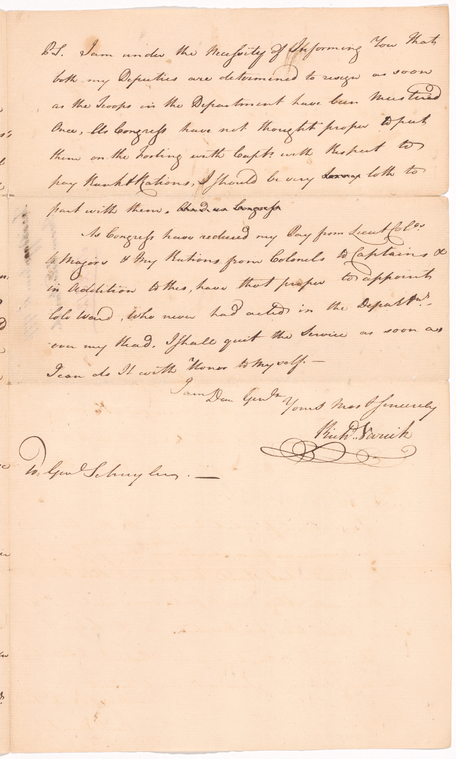 P.S. I am under the Necessity of Informing You that
both my Deputies are determined to resign as soon
as the Troops in the Department have been Mustered
Once, As Congress have not thought proper to put
them on the footing with Capts. with Respect to
pay Rank & Rations, I should be very sorry loth to
part with them, And as Congress
As Congress have reduced my Pay from Lieut Colos
to Majors & my Rations from Colonels to Captains &
in Addition to this, have thot proper to appoint
Colo Ward, who never had acted in the Departmt.
over my Head. I shall quit the Service as soon as
I can do It with Honor to Myself. —
I am Dear Genl.
Yours Most Sincerely
Richd. Varick
To Genl. Schuyler. —